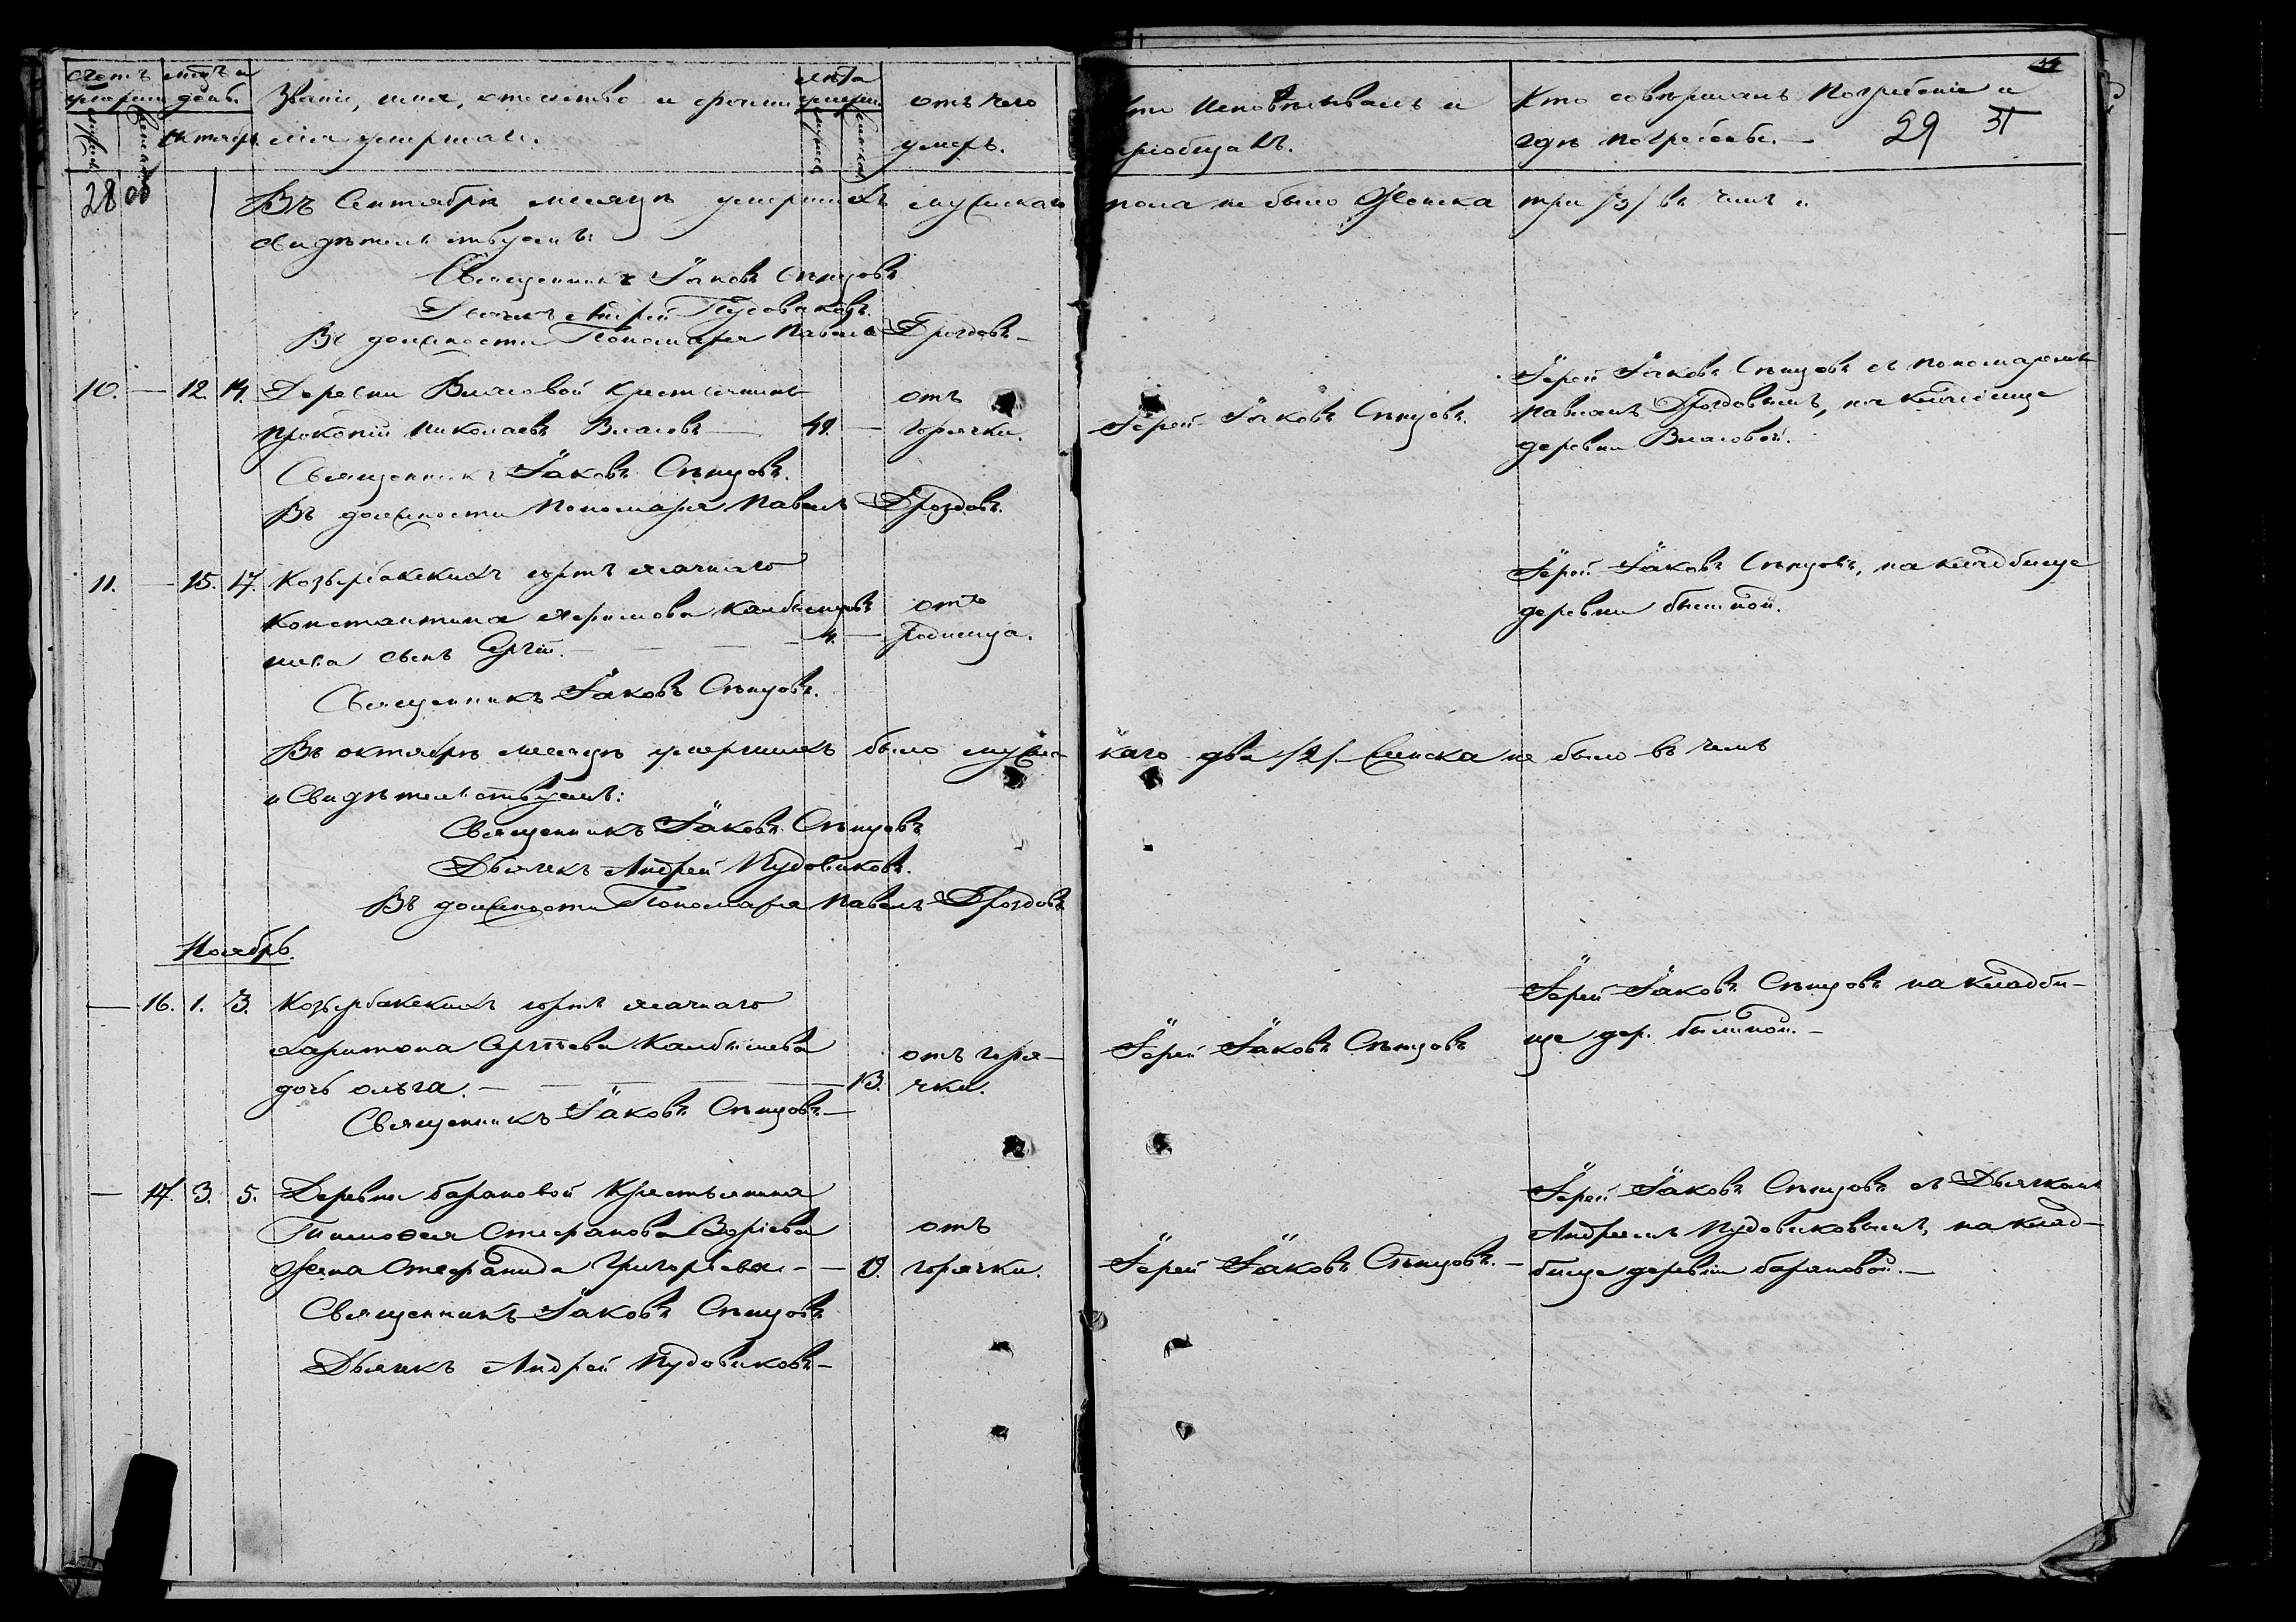 Счетъ умерши
мѣсць и день.
Званіе, имя, отечество и фами
лія умершаго.
лѣта умерш.
отъ чего
умеръ.
исповѣдывалъ и
пріобщалъ.
Кто совершалъ погребеніе и
гдѣ погребены.
29
31
мужеска
женска
Октябрь
мужеска
женска
28 об
Въ Сентябрѣ месяцѣ умершихъ мужскаго пола не было женска три /3/ въ чемъ и
свидѣтельствуемъ:
Священникъ Іаковъ Слѣпцовъ
Дьячекъ Андрей Пудовиковъ.
Въ должности Пономаря Павелъ Дроздовъ
10. — 12. 14. Деревни Власовой крестьянинъ
Прокопій Николаевъ Власовъ — 49. —
отъ
горячки.
Іерей Іаковъ Слѣпцовъ.
Іерей Іаковъ Слѣпцовъ съ пономаремъ
Павломъ Дроздовымъ, на кладбище
деревни Власовой.
Священникъ Іаковъ Слѣпцовъ.
Въ должности Пономаря Павелъ Дроздовъ.
11. — 15. 17. юртъ ясачнаго
Константина
сынъ Сергій. — 4. —
отъ
родимца.
Іерей Іаковъ Слѣпцовъ, на кладбище
деревни
Священникъ Іаковъ Слѣпцовъ.
Въ октябрѣ месяцѣ умершихъ было мужес каго два /2/. Женска не было въ чемъ
и Свидѣтельствуемъ:
Священникъ Іаковъ Слѣпцовъ
Дьячекъ Андрей Пудовиковъ.
Въ должности Пономаря Павелъ Дроздовъ
Ноябрь.
— 16. 1. 3. юртъ ясачнаго
Харитона Сергѣева Калбышева
дочь Ольга. — 13.
отъ горя-
чки.
Іерей Іаковъ Слѣпцовъ
Іерей Іаковъ Слѣпцовъ на кладби-
ще дер.
Священникъ Іаковъ Слѣпцовъ. —
— 17. 3. 5. Деревни Барановой Крестьянина
Тимофея Стефанова
Жена Стефанида Григорьева — 19.
отъ
горячки.
Іерей Іаковъ Слѣпцовъ. —
Іерей Іаковъ Слѣпцовъ съ Дьячкомъ
Андреемъ Пудовиковымъ, на клад-
бище деревни Барановой. —
Священникъ Іаковъ Слѣпцовъ
Дьячекъ Андрей Пудовиковъ —